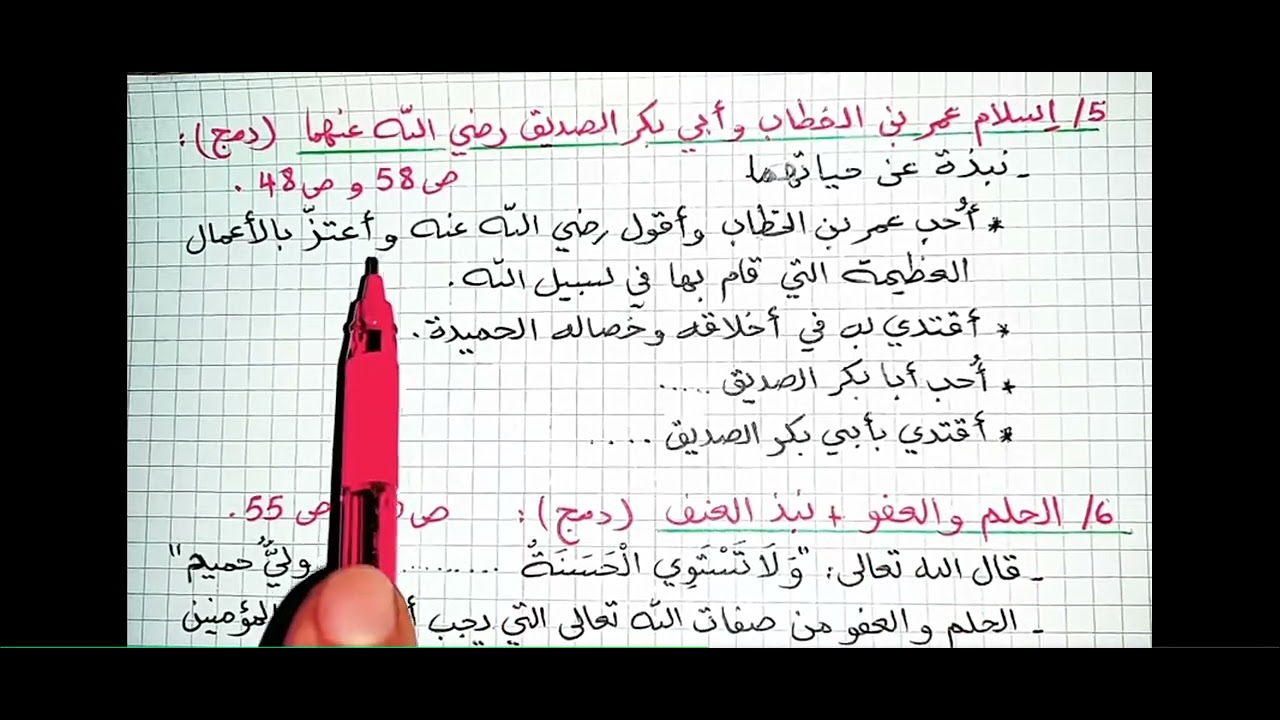 5/ إسلام عمر بن الخطاب وأبي بكر الصديق رضي الله عنهما (دمج):
ـ نبذة عن حياتهما ص58 و ص48.
* أُحب عمر بن الخطاب وأقول رضي الله عنه وأعتزّ بالأعمال
العظيمة التي قام بها في سبيل الله.
* أقتدي به في أخلاقه وخصاله الحميدة.
* أُحب أبا بكر الصديق .....
* أقتدي بأبي بكر الصديق ....
6/ الحلم والعفو + نبذ العنف (دمج): ص ص 55.
ـ قال الله تعالى: "وَلَا تَسْتَوِي الْحَسَنَةُ ......... وليٌّ حميم"
ـ الحلم والعفو من صفات الله تعالى التي يجب المؤمنين